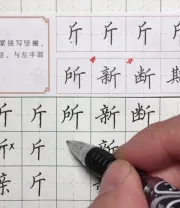 斤 斤 斤 斤
紧接写竖撇,
竖。与左半部
所 新 断 斯
斤 斤 所 新 断
斤 斤
亲 斤